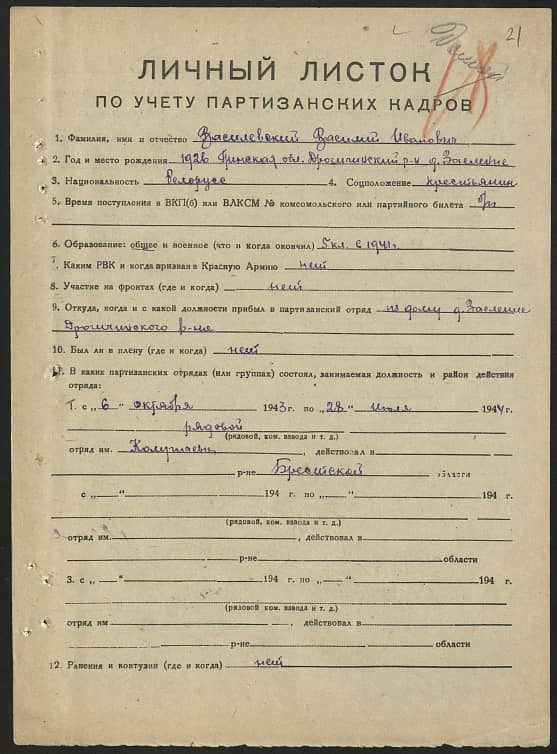 21
ЛИЧНЫЙ ЛИСТОК
ПО УЧЕТУ ПАРТИЗАНСКИХ КАДРОВ
1. Фамилия, имя и отчество Василевский Василий Иванович
2. Год и место рождения 1926 Пинская обл. Дрогичинский р-н д. Заеленье
3. Национальность белорус 4. Соцположение крестьянин
5. Время поступления в ВКП(б) или ВЛКСМ № комсомольского или партийного билета б/п
6. Образование: общее и военное (что и когда окончил) 5 кл. в 1941 г.
7. Каким РВК и когда призван в Красную Армию нет
8. Участие на фронтах (где и когда) нет
9. Откуда, когда и с какой должности прибыл в партизанский отряд из дому д. Заеленье
Дрогичинского р-на
10. Был ли в плену (где и когда) нет
11. В каких партизанских отрядах (или группах) состоял, занимаемая должность и район действия
отряда:
1. с „6“ октября 1943 г. по „28“ июля 1944 г.
рядовой
(рядовой, ком. взвода и т. д.)
отряд им. , действовал в
р-не Брестской области
с „ “ 194 г. по „ “ 194 г.
(рядовой, ком. взвода и т. д.)
отряд им. , действовал в
р-не области
3. с „ “ 194 г. по „ “ 194 г.
(рядовой, ком. взвода и т. д.)
отряд им , действовал в
р-не области
12. Ранения и контузии (где и когда) нет